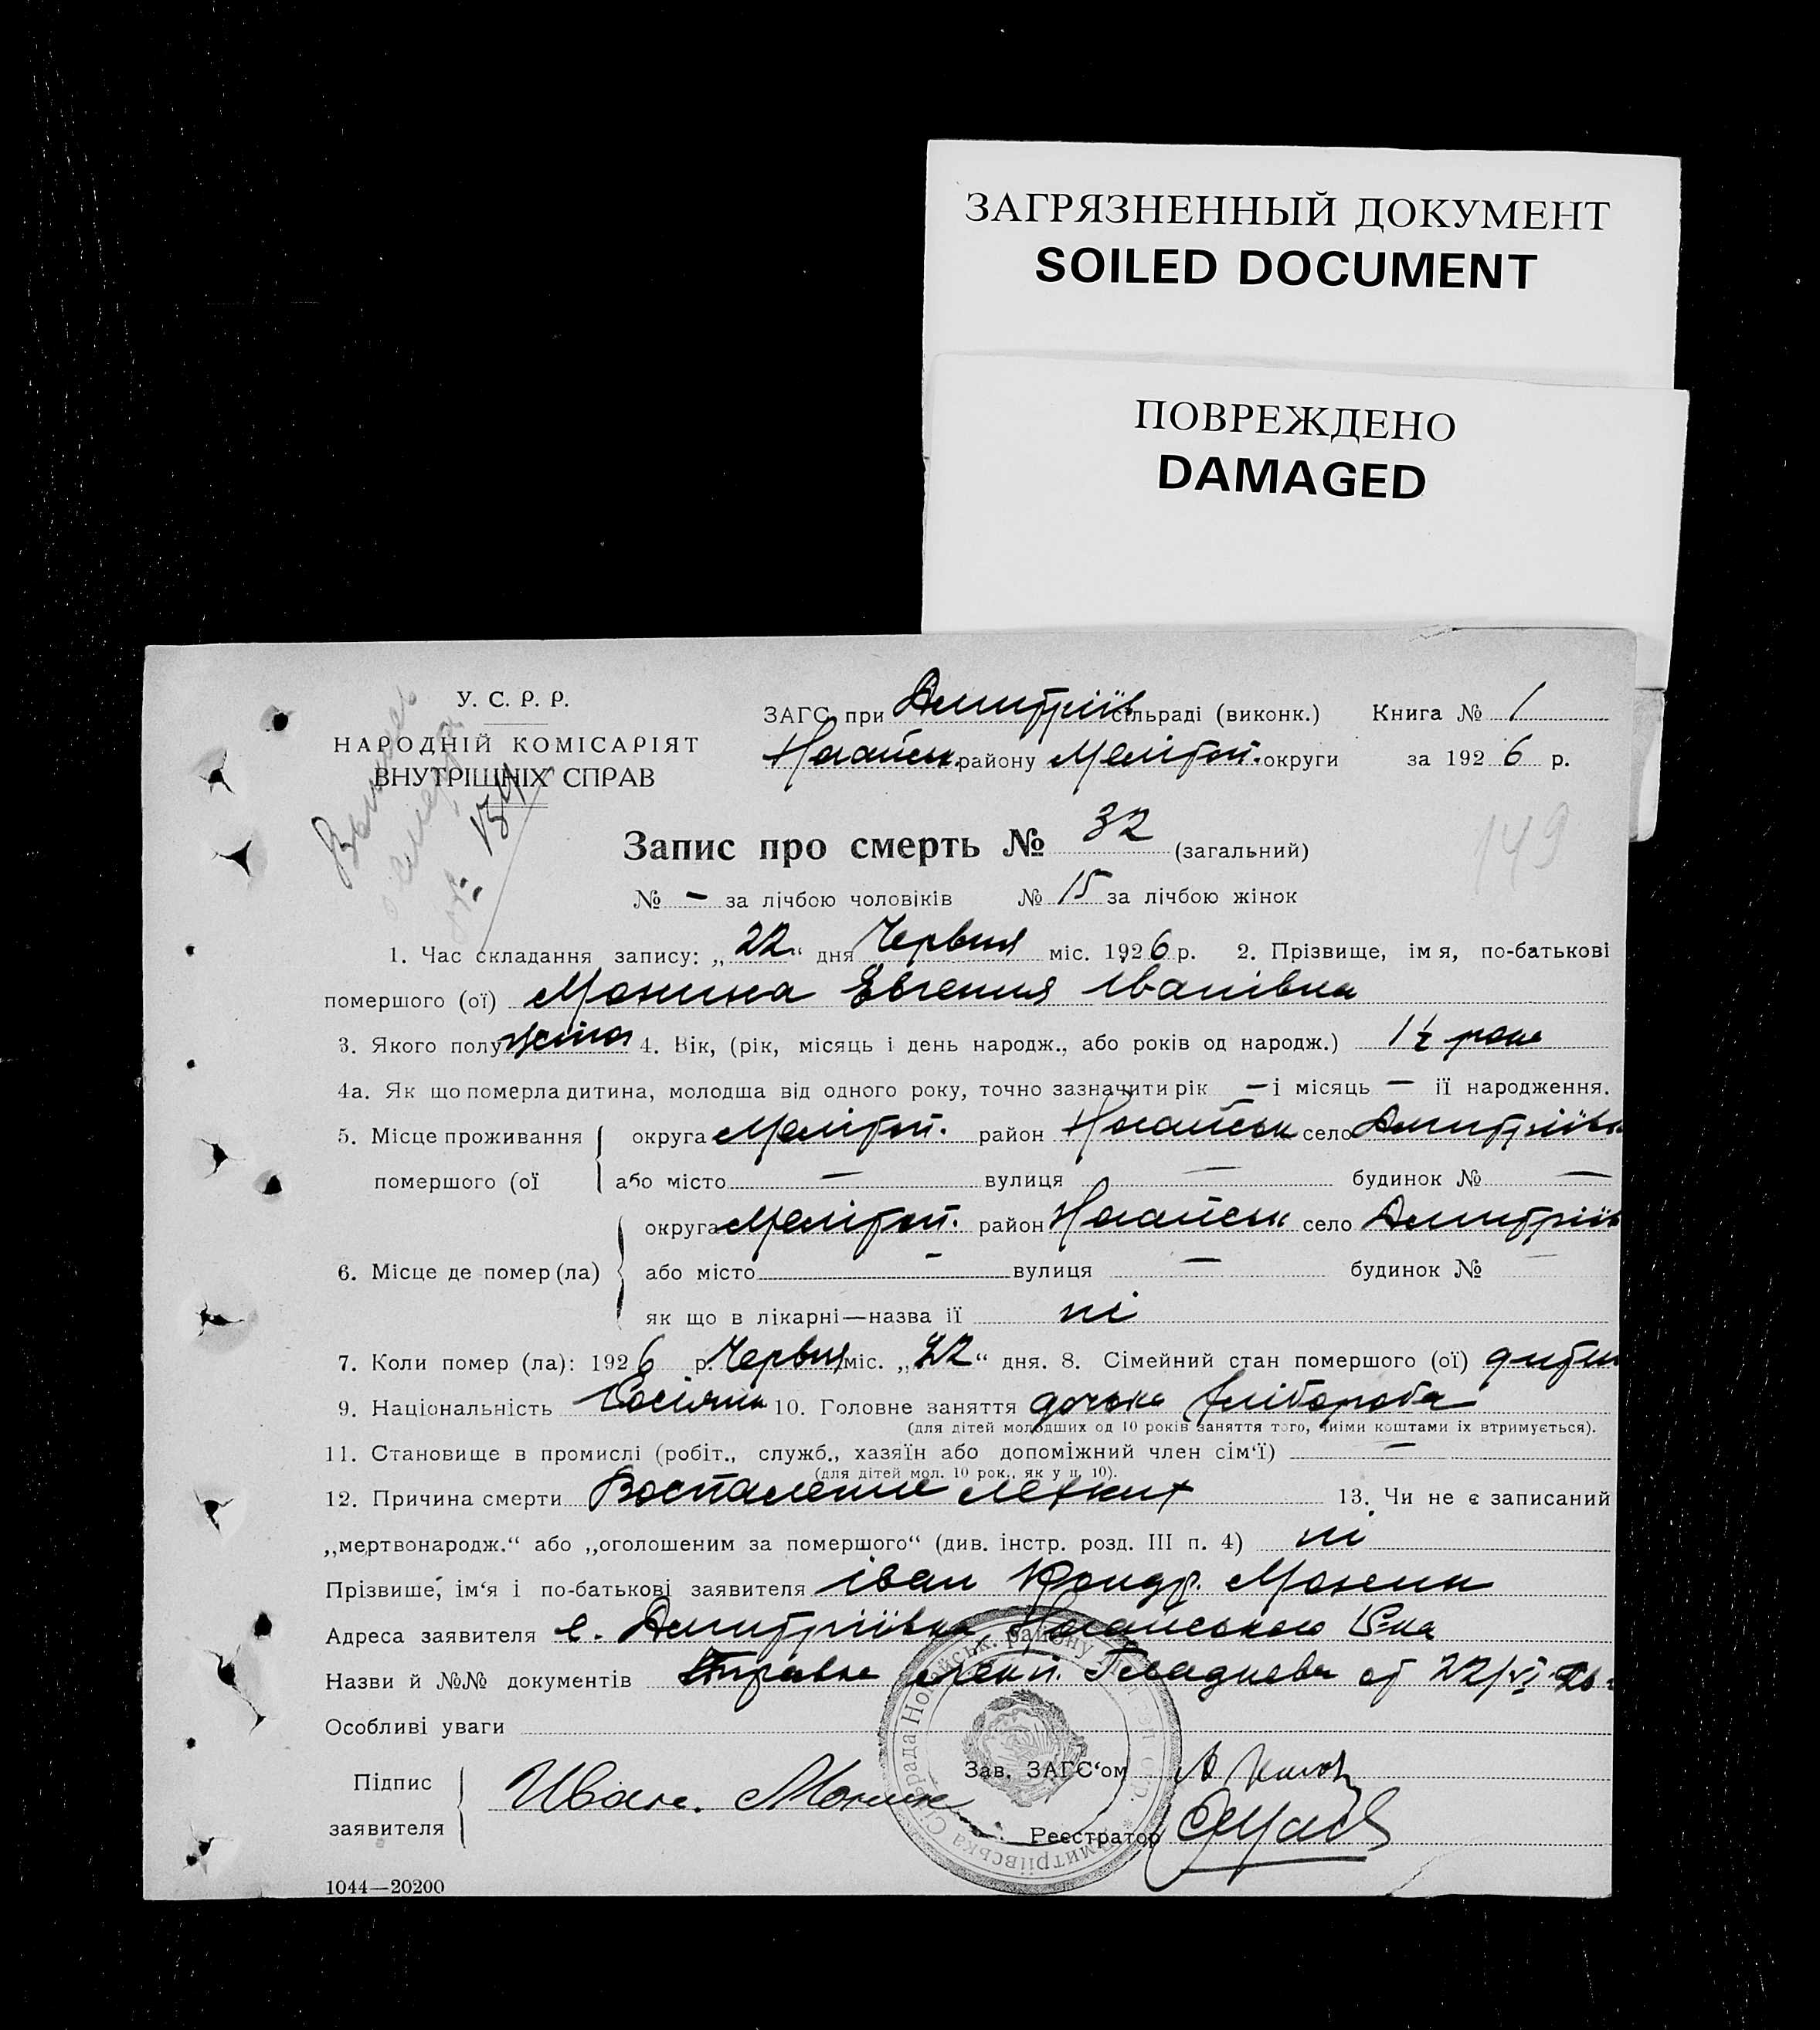 ЗАГРЯЗНЕННЫЙ ДОКУМЕНТ
SOILED DOCUMENT
ПОВРЕЖДЕНО
DAMAGED
У. С. Р. Р.
НАРОДНІЙ КОМІСАРІЯТ
ВНУТРІШНІХ СПРАВ
ЗАГС при Дмитріїв сільраді (виконк.) Книга № 1
Ногайськ. району Мелітоп. округи за 1926 р.
149
Запис про смерть № 32 (загальний)
№ — за лічбою чоловіків № 15 за лічбою жінок
1. Час складання запису: „22“ дня Червня міс. 1926 р. 2. Прізвище, ім я, по-батькові
помершого (ої) Мокина Евгения Іванівна
3. Якого полу 4. Вік, (рік, місяць і день народж., або років од народж.) 1½ роки
4а. Як що померла дитина, молодша від одного року, точно зазначити рік — і місяць — її народження.
5. Місце проживання помершого (ої
округа Мелітоп. район Ногайськ село Дмитріївк
або місто — вулиця — будинок № —
6. Місце де помер (ла)
округа Мелітоп. район Ногайськ село Дмитріїв
або місто — вулиця — будинок № —
як що в лікарні—назва її ні
7. Коли помер (ла): 1926 р. Червня міс. „22“ дня. 8. Сімейний стан помершого (ої) дитин
9. Національність 10. Головне заняття дочка хлібороба
(для дітей молодших од 10 років заняття того, чиїми коштами їх втримується).
11. Становище в промислі (робіт., служб., хазяїн або допоміжний член сім‘ї) —
(для дітей мол. 10 рок., як у п. 10).
12. Причина смерти Воспаление легких 13. Чи не є записаний
„мертвонародж.“ або „оголошеним за помершого“ (див. інстр. розд. III п. 4) ні
Прізвише, ім‘я і по-батькові заявителя Іван Кондр. Мокин
Адреса заявителя с. Дмитріївка Ногайського Р-на
Назви й №№ документів от 22/VI 26
Особливі уваги
Підпис заявителя Иван. Мокин
Зав. ЗАГС‘ом
Реєстратор
1044—20200